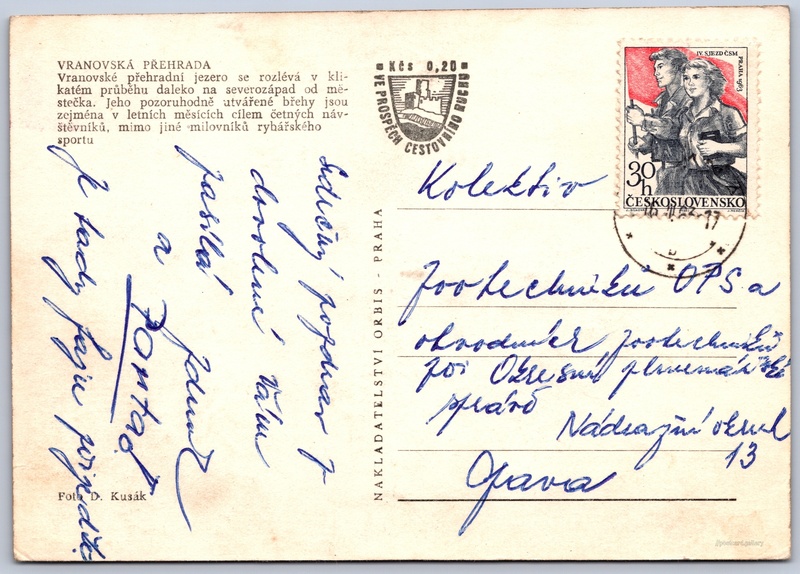 VRANOVSKÁ PŘEHRADA
Vranovské přehradní jezero se rozlévá v kli-
katém průběhu daleko na severozápad od mě-
stečka. Jeho pozoruhodně utvářené břehy jsou
zejména v letních měsících cílem četných náv-
štěvníků, mimo jiné milovníků rybářského
sportu
Srdečný pozdrav z
dovolené Vám
zasílá
a
Je tady fajn
Foto D. Kusák
NAKLADATELSTVÍ ORBIS - PRAHA
Kčs 0,20
VE PROSPĚCH CESTOVNÍHO RUCHU
IV. SJEZD ČSM
PRAHA 1963
30h
ČESKOSLOVENSKO
Kolektiv
Zootechniků OPS a
obvodních zootechniků
při Okresní plemenářské
správě
Nádražní okruh
13
Opava